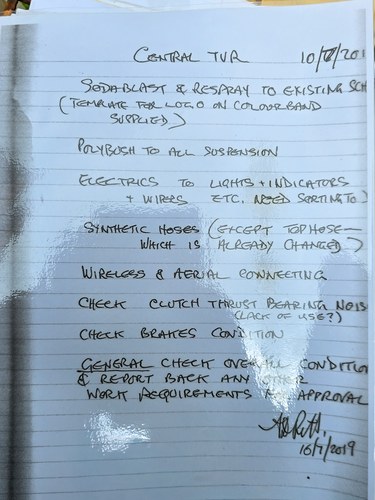 CENTRAL TVR
SODABLAST & RESPRAY TO EXISTING SCH
(TEMPLATE FOR LOGO ON COLOURBAND
SUPPLIED)
POLYBUSH TO ALL SUSPENSION
ELECTRICS TO LIGHTS + INDICATORS
+ WIPERS ETC. NEED SORTING TO)
SYNTHETIC HOSES (EXCEPT TOP HOSE—
WHICH IS ALREADY CHANGED)
WIRELESS & AERIAL CONNECTING
CHECK CLUTCH THRUST BEARING NOIS
(LACK OF USE?)
CHECK BRAKES CONDITION
GENERAL CHECK OVERALL CONDITION
& REPORT BACK ANY OTHER
WORK REQUIREMENTS APPROVAL
16/7/2019